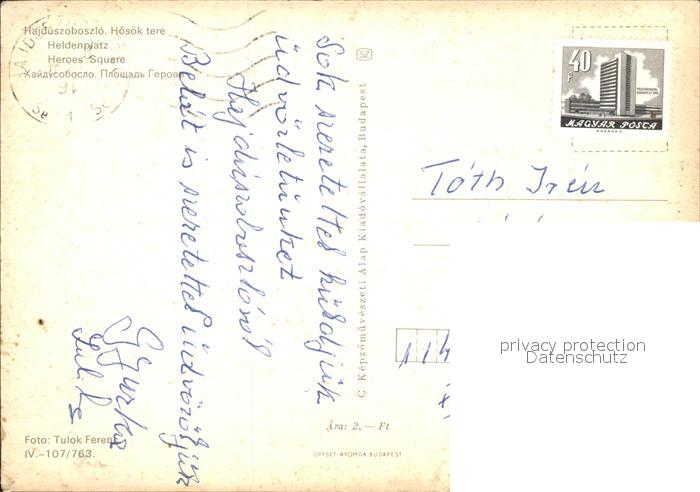 Hajdúszoboszló. Hősök tere
Heldenplatz
Heroes' Square
Хайдусобосло. Площадь Герое
SZ
40
f
MAGYAR POSTA
Sok szeretettel küldjük
üdvözletünket
Hajdúszoboszlóról
Belát is szeretettel üdvözöljük
Gyurka
C Képzőművészeti Alap Kiadóvállalata, Budapest
Tóth Irén
114
privacy protection
Datenschutz
Foto: Tulok Ferenc
IV.–107/763.
Ára: 2,— Ft
OFFSET-NYOMDA BUDAPEST